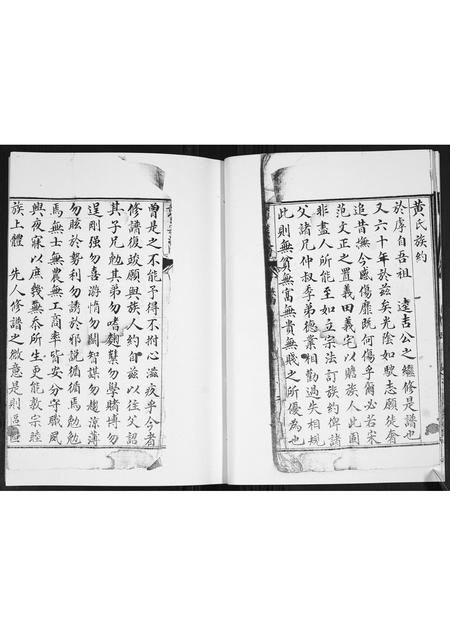 黃氏族約
於虖自吾祖 達吉公之繼修是譜也
又六十年於茲矣光陰如駛志願徒奢
追昔憮今感傷靡既何傷乎爾必若宋
范文正之置義田義宅以贍族人此固
非盡人所能至如立宗法訂族約俾諸
父諸兄仲叔季弟德業相勸過失相規
此則無貧無富無貴無賤之所優為也
曾是之不能予得不拊心滋疚乎今者
修譜復竣願與族人約自茲以往父詔
其子兄勉其弟勿嗜麴糵勿學賭博勿
逞剛强勿喜游惰勿鬬智謀勿趨涼薄
勿眩於勢利勿誘於邪說循循焉勉勉
焉無士無農無工商率皆安分守職夙
興夜寐以庶幾無忝所生更能敦宗睦
族上體 先人修譜之微意是則區區